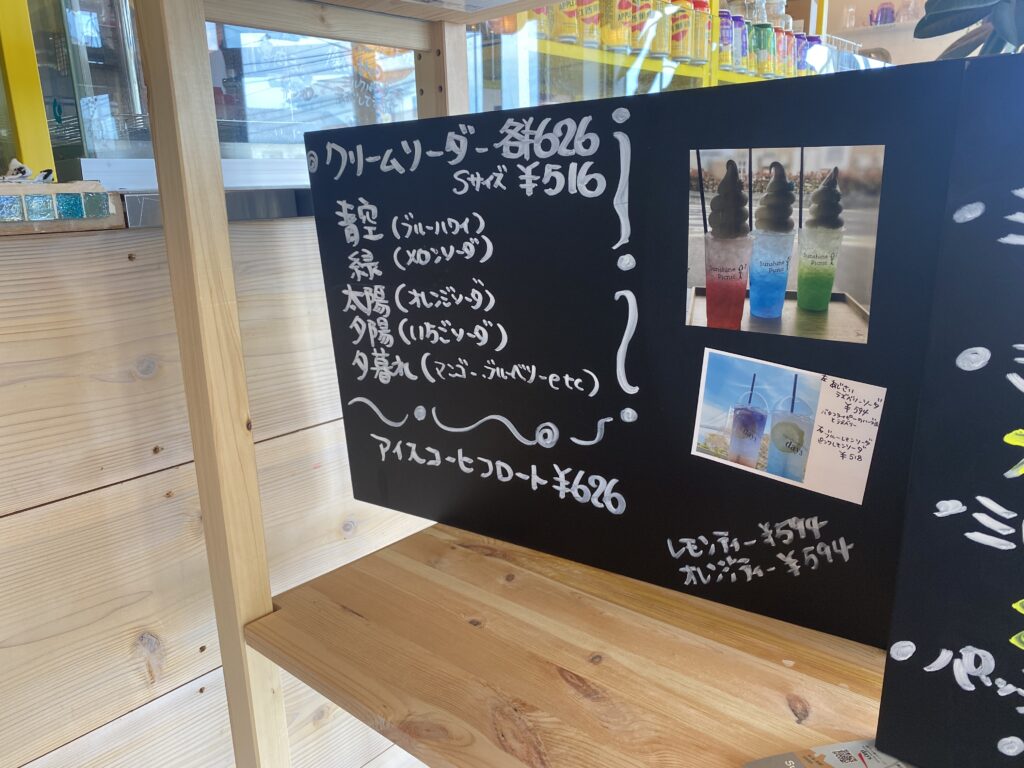 クリームソーダー 各¥626
Sサイズ ¥516
青空 (ブルーハワイ)
緑 (メロンソーダ)
太陽 (オレンジソーダ)
夕陽 (いちごソーダ)
夕暮れ (マンゴー、ブルーベリーetc)
アイスコーヒフロート ¥626
Sunshine
Picnic
Sunshine
Picnic
Sunshine
Picnic
左 あじさい
ラズベリーソーダ
¥594
右 ブルーレモンソーダ
ピンクレモンソーダ
¥518
レモンティー ¥594
オレンジティー ¥594